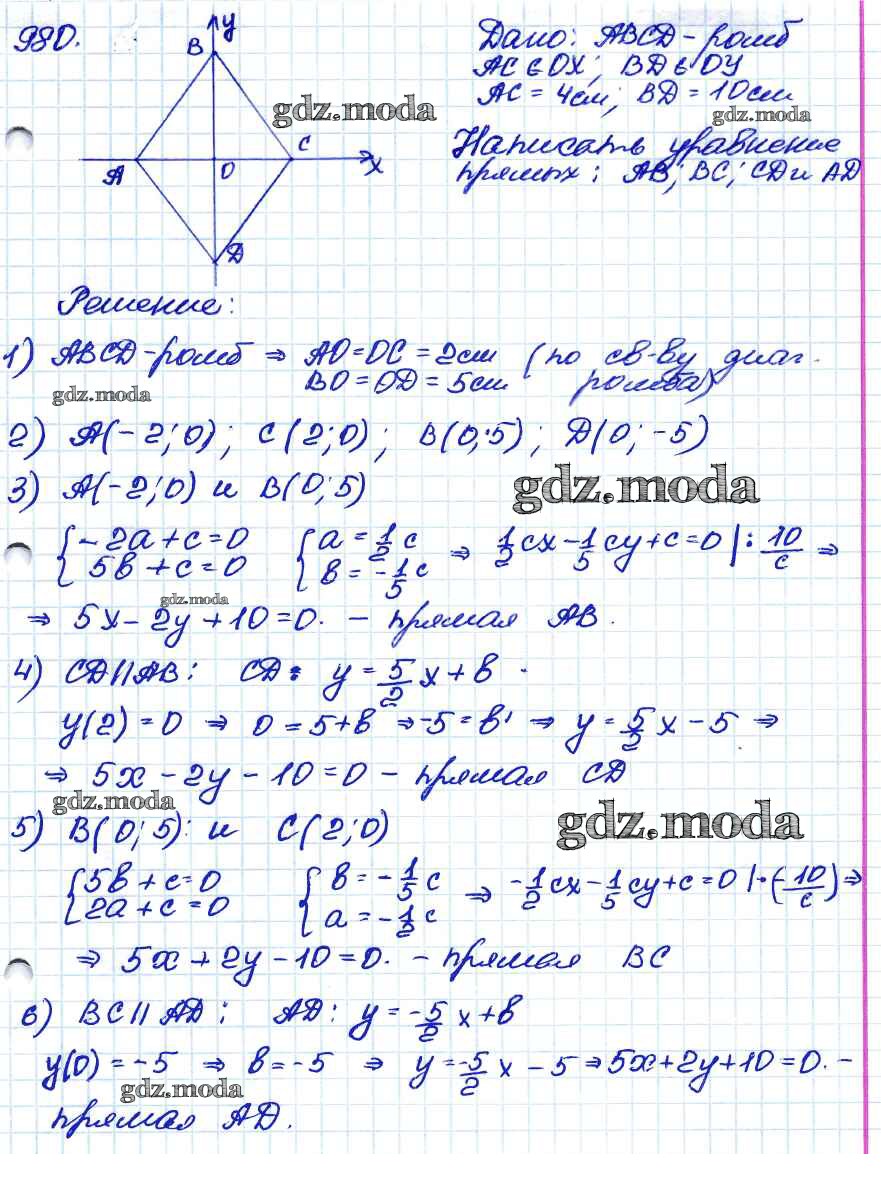 980.
y
B
C
A
O
x
D
Дано: ABCD - ромб
AC ∈ OX; BD ∈ OY
AC = 4см; BD = 10см
gdz.moda
gdz.moda
Написать уравнение
прямых: AB; BC; CD и AD
Решение:
1) ABCD - ромб ⇒ AO = OC = 2см (по св-ву диаг.
BO = OD = 5см ромба)
gdz.moda
2) A(-2; 0); C(2; 0); B(0; 5); D(0; -5)
3) A(-2; 0) и B(0; 5)
gdz.moda
{-2a + c = 0 {a = 1/2 c ⇒ 1/2 cx - 1/5 cy + c = 0 | : 10/c ⇒
{5b + c = 0 {b = -1/5 c
gdz.moda
⇒ 5x - 2y + 10 = 0. - прямая AB.
4) CD || AB: CD: y = 5/2 x + b
y(2) = 0 ⇒ 0 = 5 + b ⇒ -5 = b ⇒ y = 5/2 x - 5 ⇒
⇒ 5x - 2y - 10 = 0 - прямая CD
gdz.moda
gdz.moda
5) B(0; 5) и C(2; 0)
{5b + c = 0 {b = -1/5 c ⇒ -1/2 cx - 1/5 cy + c = 0 | · (-10/c) ⇒
{2a + c = 0 {a = -1/2 c
⇒ 5x + 2y - 10 = 0. - прямая BC
6) BC || AD: AD: y = -5/2 x + b
y(0) = -5 ⇒ b = -5 ⇒ y = -5/2 x - 5 ⇒ 5x + 2y + 10 = 0. -
gdz.moda
прямая AD.